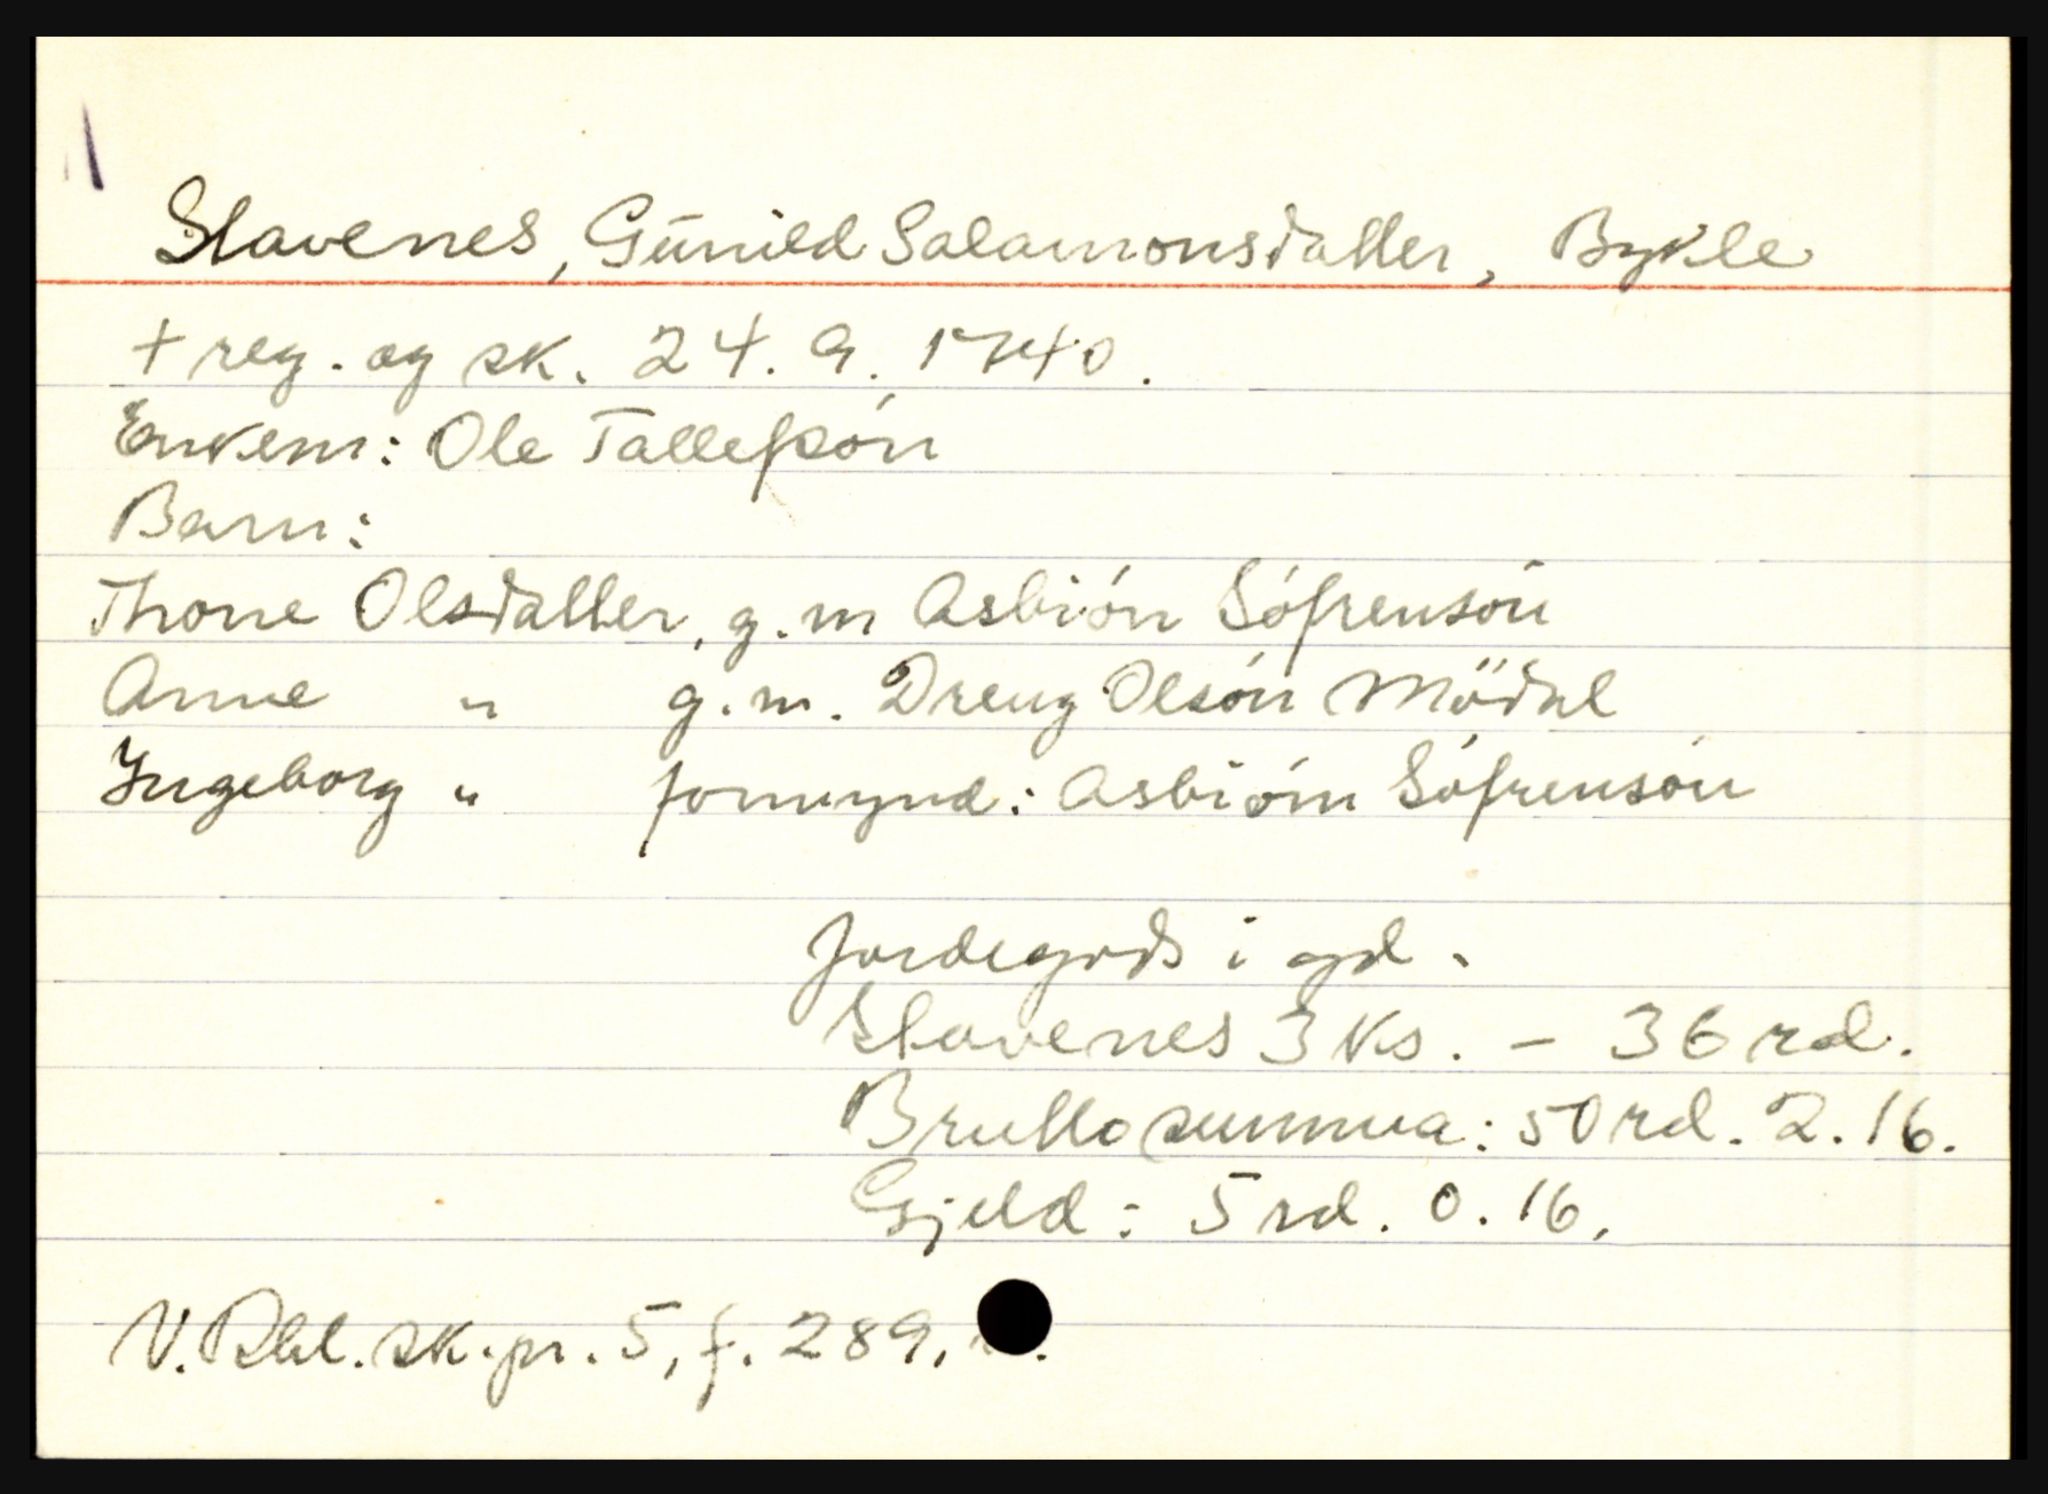 Stavenes, Gunild Salamonsdatter, Bykle
+ reg. og sk. 24. 9. 1740.
Enkem: Ole Tallefsón
Barn:
Thone Olsdatter, g. m Asbión Sófrensón
Anne " g. m. Dreng Olsón Mödal
Ingeborg " formynd: Asbióm Sófrensón
Jordegods i gd.
Stavenes 3 ks. - 36 rd.
Brutto summa: 50 rd. 2. 16.
Gjeld: 5 rd. 0. 16.
V. Rbl. sk. pr. 5, f. 289,